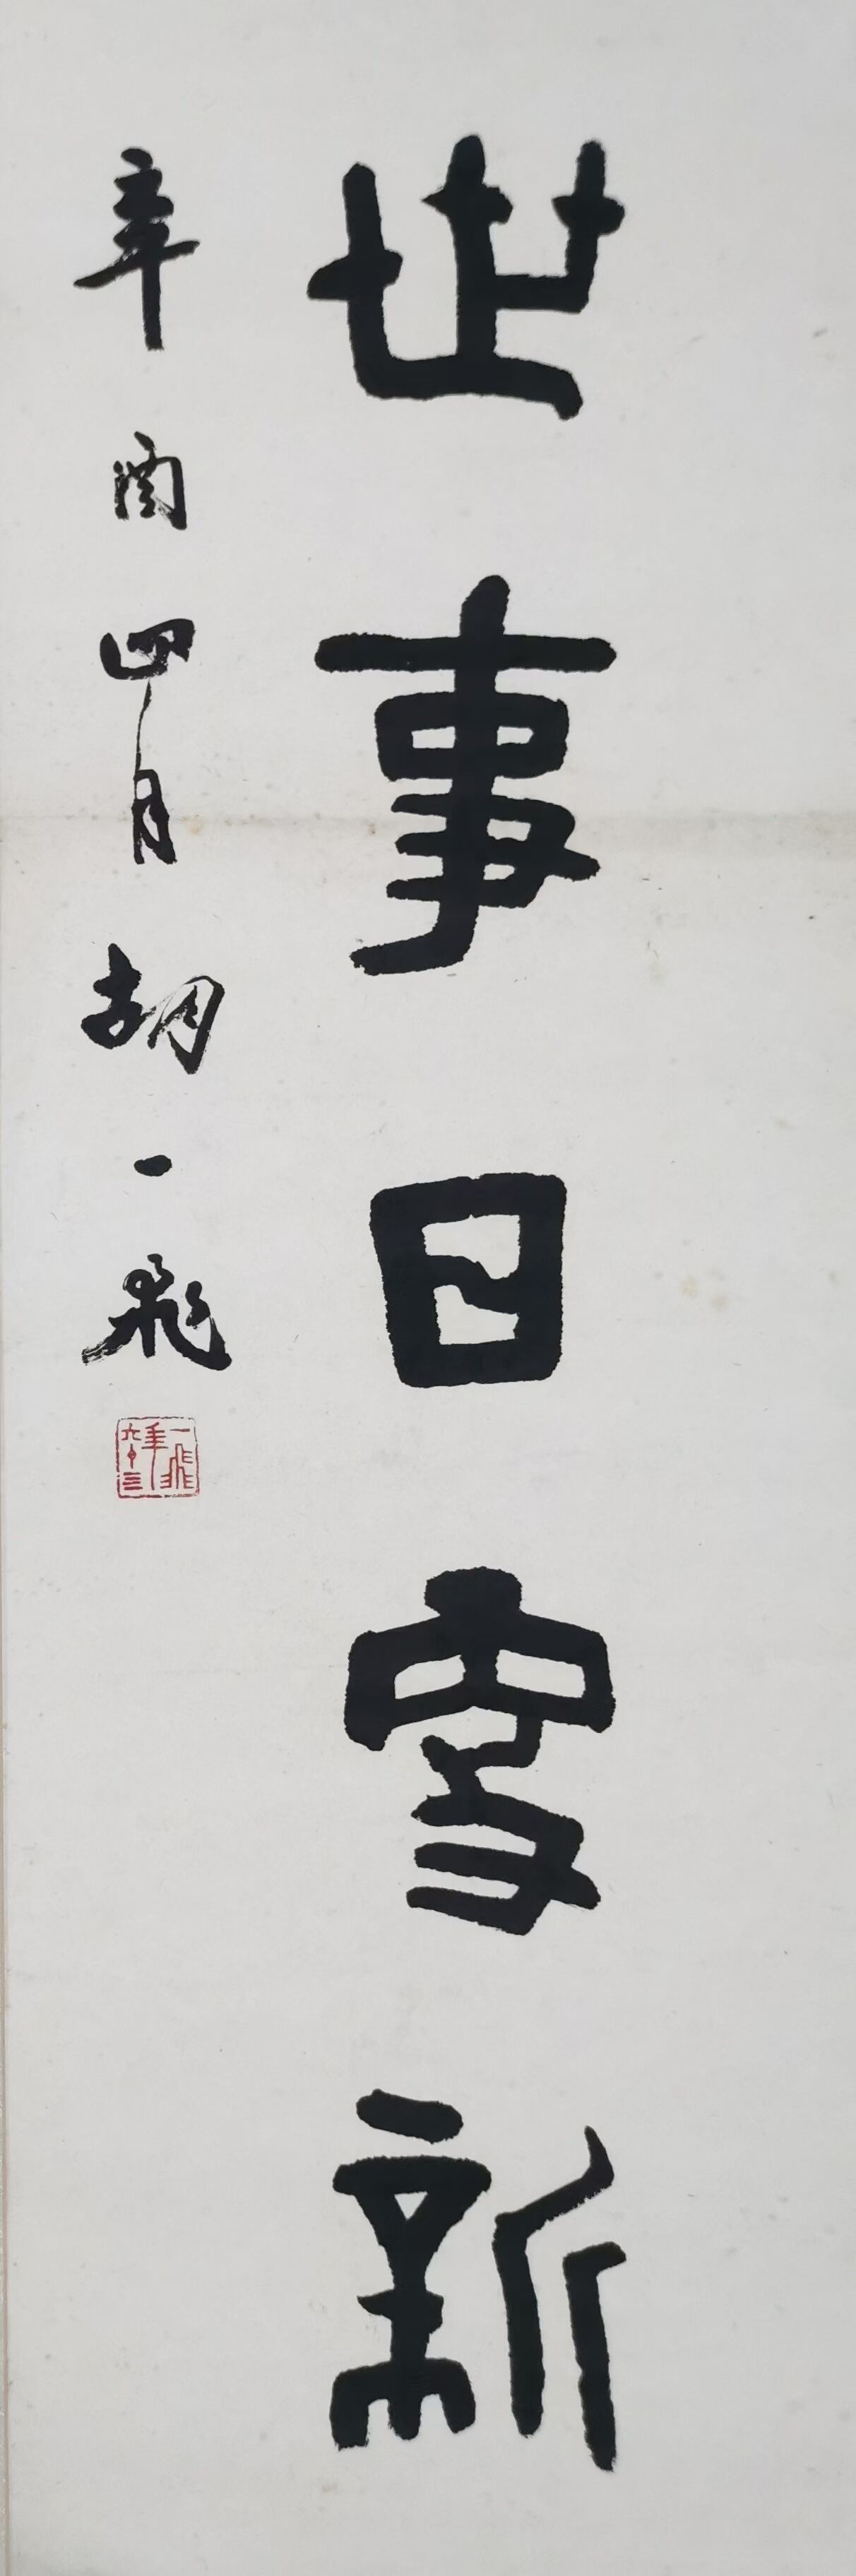 世事日更新
辛酉四月胡一飛
一飛年六十三